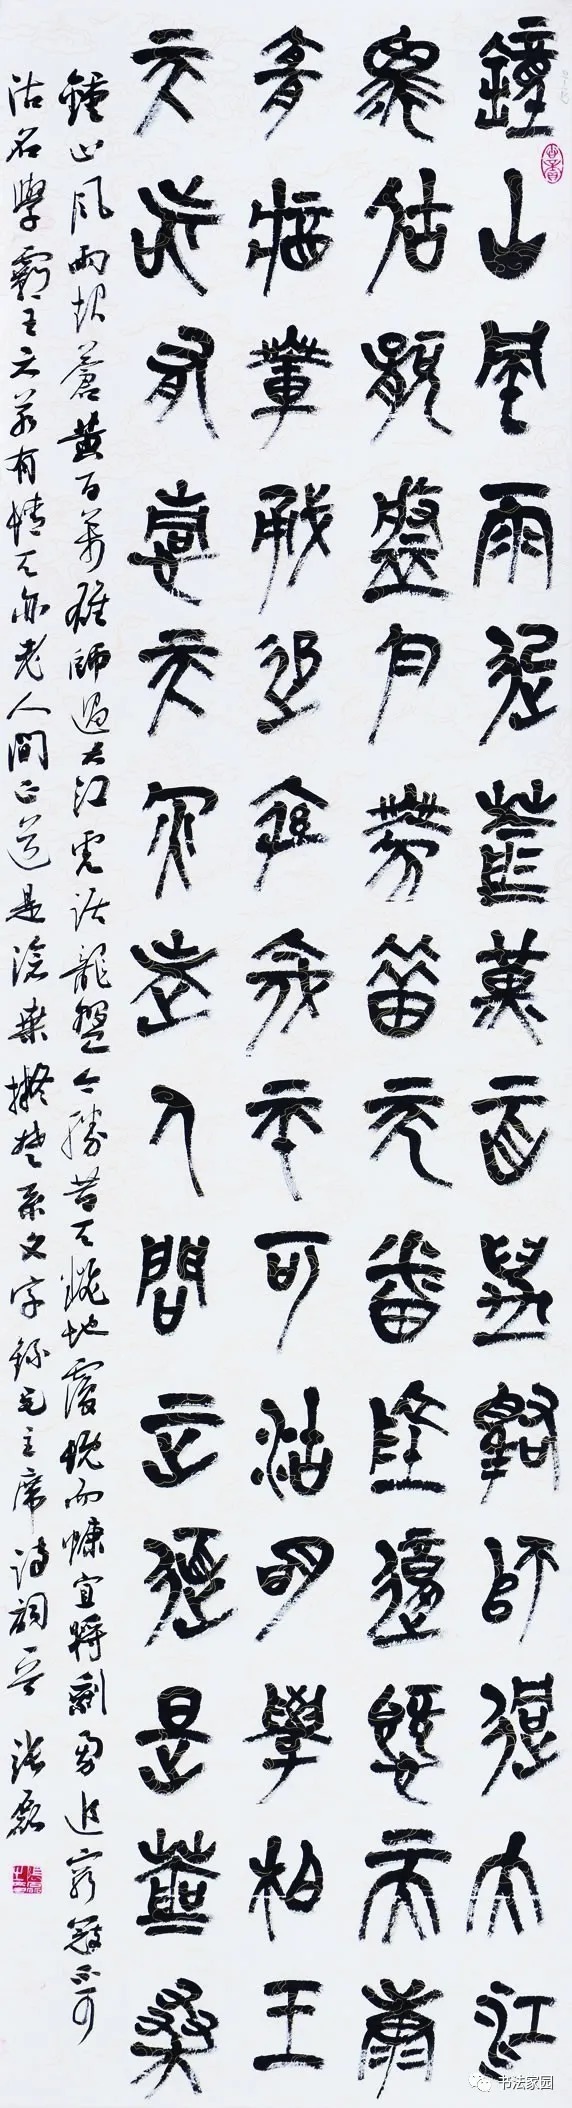 鐘山風雨起蒼黃百萬雄師過大江
虎踞龍盤今勝昔天翻地覆慨而慷
宜將剩勇追窮寇不可沽名學霸王
天若有情天亦老人間正道是滄桑
鐘山風雨起蒼黃百萬雄師過大江虎踞龍盤今勝昔天翻地覆慨而慷宜將剩勇追窮寇不可
沽名學霸王天若有情天亦老人間正道是滄桑 擬楚系文字錄毛主席詩詞 張磊
书法家园